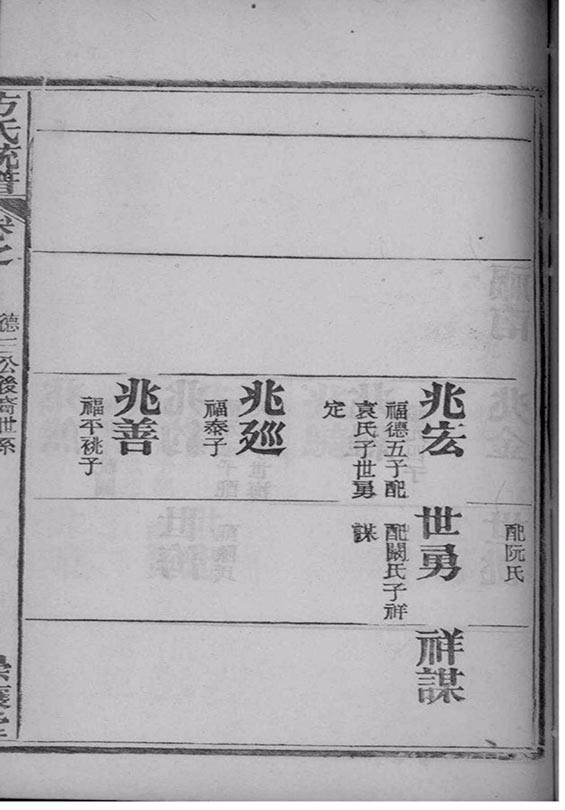 配阮氏
兆宏
福德五子配
袁氏子世勇
定
世勇
配闕氏子祥
謀
祥謀
兆廵
福泰子
兆善
福平祧子
方氏統譜
卷之
德三公後裔世系